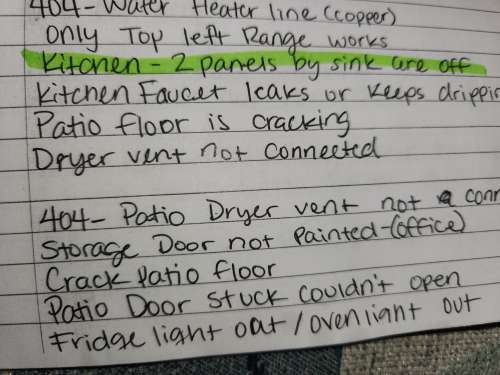 404- Water Heater line (copper)
Only Top left Range works
Kitchen - 2 panels by sink are off
Kitchen Faucet leaks or keeps drippin
Patio floor is cracking
Dryer vent not connected
404- Patio Dryer vent not conn
Storage Door not Painted-(office)
Crack Patio floor
Patio Door stuck couldn't open
Fridge light out / oven light out